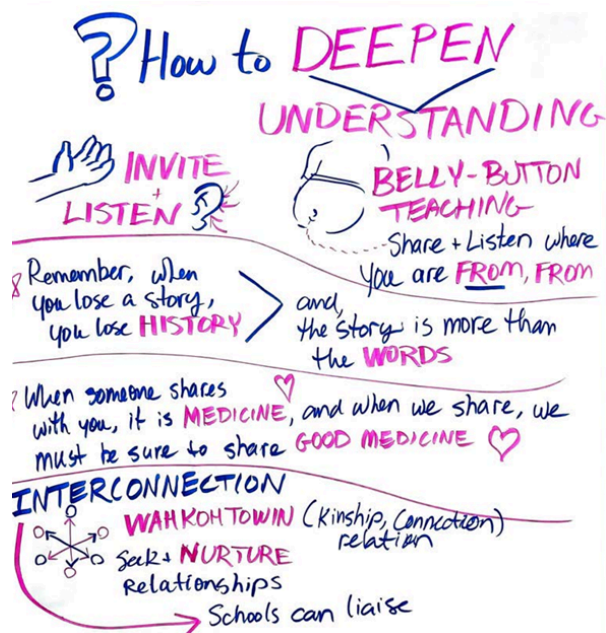 ? How to DEEPEN
UNDERSTANDING
INVITE
+
LISTEN
BELLY-BUTTON
TEACHING
Share + Listen where
you are FROM, FROM
Remember, when
you lose a story,
you lose HISTORY
and,
the story is more than
the WORDS
When someone shares
with you, it is MEDICINE, and when we share, we
must be sure to share GOOD MEDICINE
INTERCONNECTION
WAHKOHTOWIN (Kinship, Connection)
relation
Seek + NURTURE
Relationships
Schools can liaise